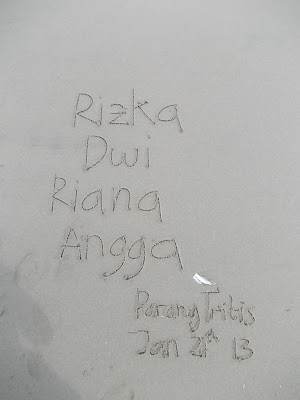 Rizka
Dwi
Riana
Angga
ParangTritis
Jan 21th 13